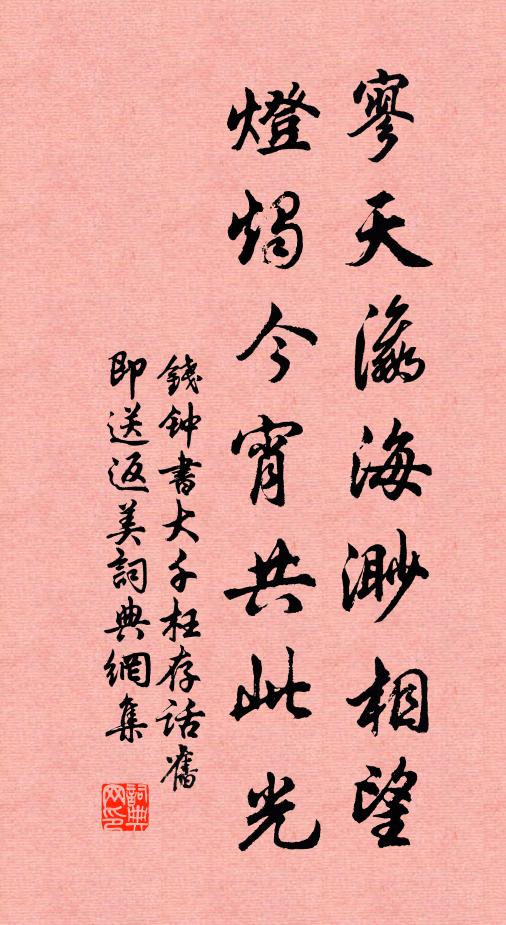 寥天瀛海渺相望
燈燭今宵共此光
錢钟書大千枉存話舊
即送返美詞典網集
詞典
网印